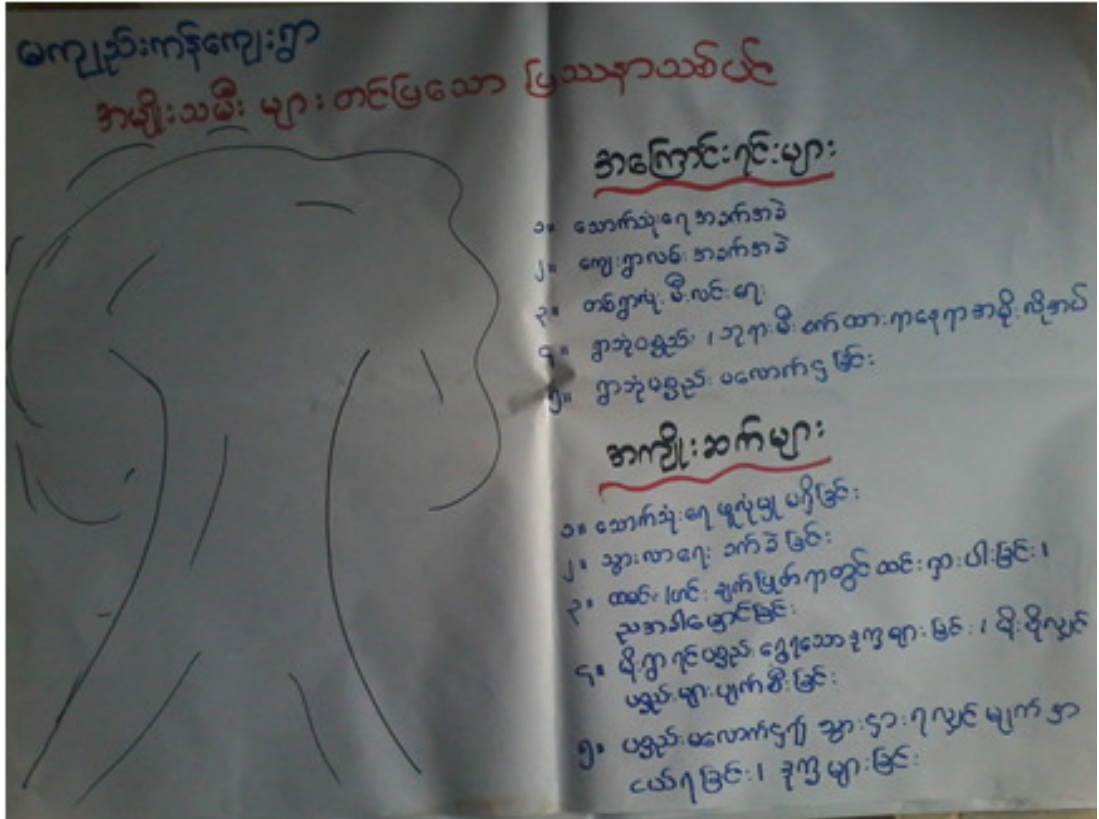 မကျည်းကန်ကျေးရွာ
အမျိုးသမီး များ တင်ပြသော ပြဿနာသစ်ပင်
အကြောင်းရင်းများ
၁။ သောက်သုံးရေ အခက်အခဲ
၂။ ကျေးရွာလမ်း အခက်အခဲ
၃။ တစ်ရွာလုံး မီးလင်းရေး
၄။ ရွာဘုံပစ္စည်း / ဘုရား မီးစက် ထားရာနေရာ အမိုး လိုအပ်
၅။ ရွာဘုံပစ္စည်း မလောက်ငှခြင်း
အကျိုးဆက်များ
၁။ သောက်သုံးရေ ဖူလုံမှု မရှိခြင်း
၂။ သွားလာရေး ခက်ခဲခြင်း
၃။ ထမင်း/ဟင်း ချက်ပြုတ်ရာတွင် ထင်းရှားပါးခြင်း၊
ညအခါမှောင်ခြင်း
၄။ မိုးရွာရင်ပစ္စည်းရွှေ့ရသောဒုက္ခများခြင်း၊ မိုးစိုလျှင်
ပစ္စည်းများပျက်စီးခြင်း
၅။ ပစ္စည်းမလောက်ငှ၍ သွားငှားရလျှင် မျက်နှာ
ငယ်ရခြင်း၊ ဒုက္ခများခြင်း